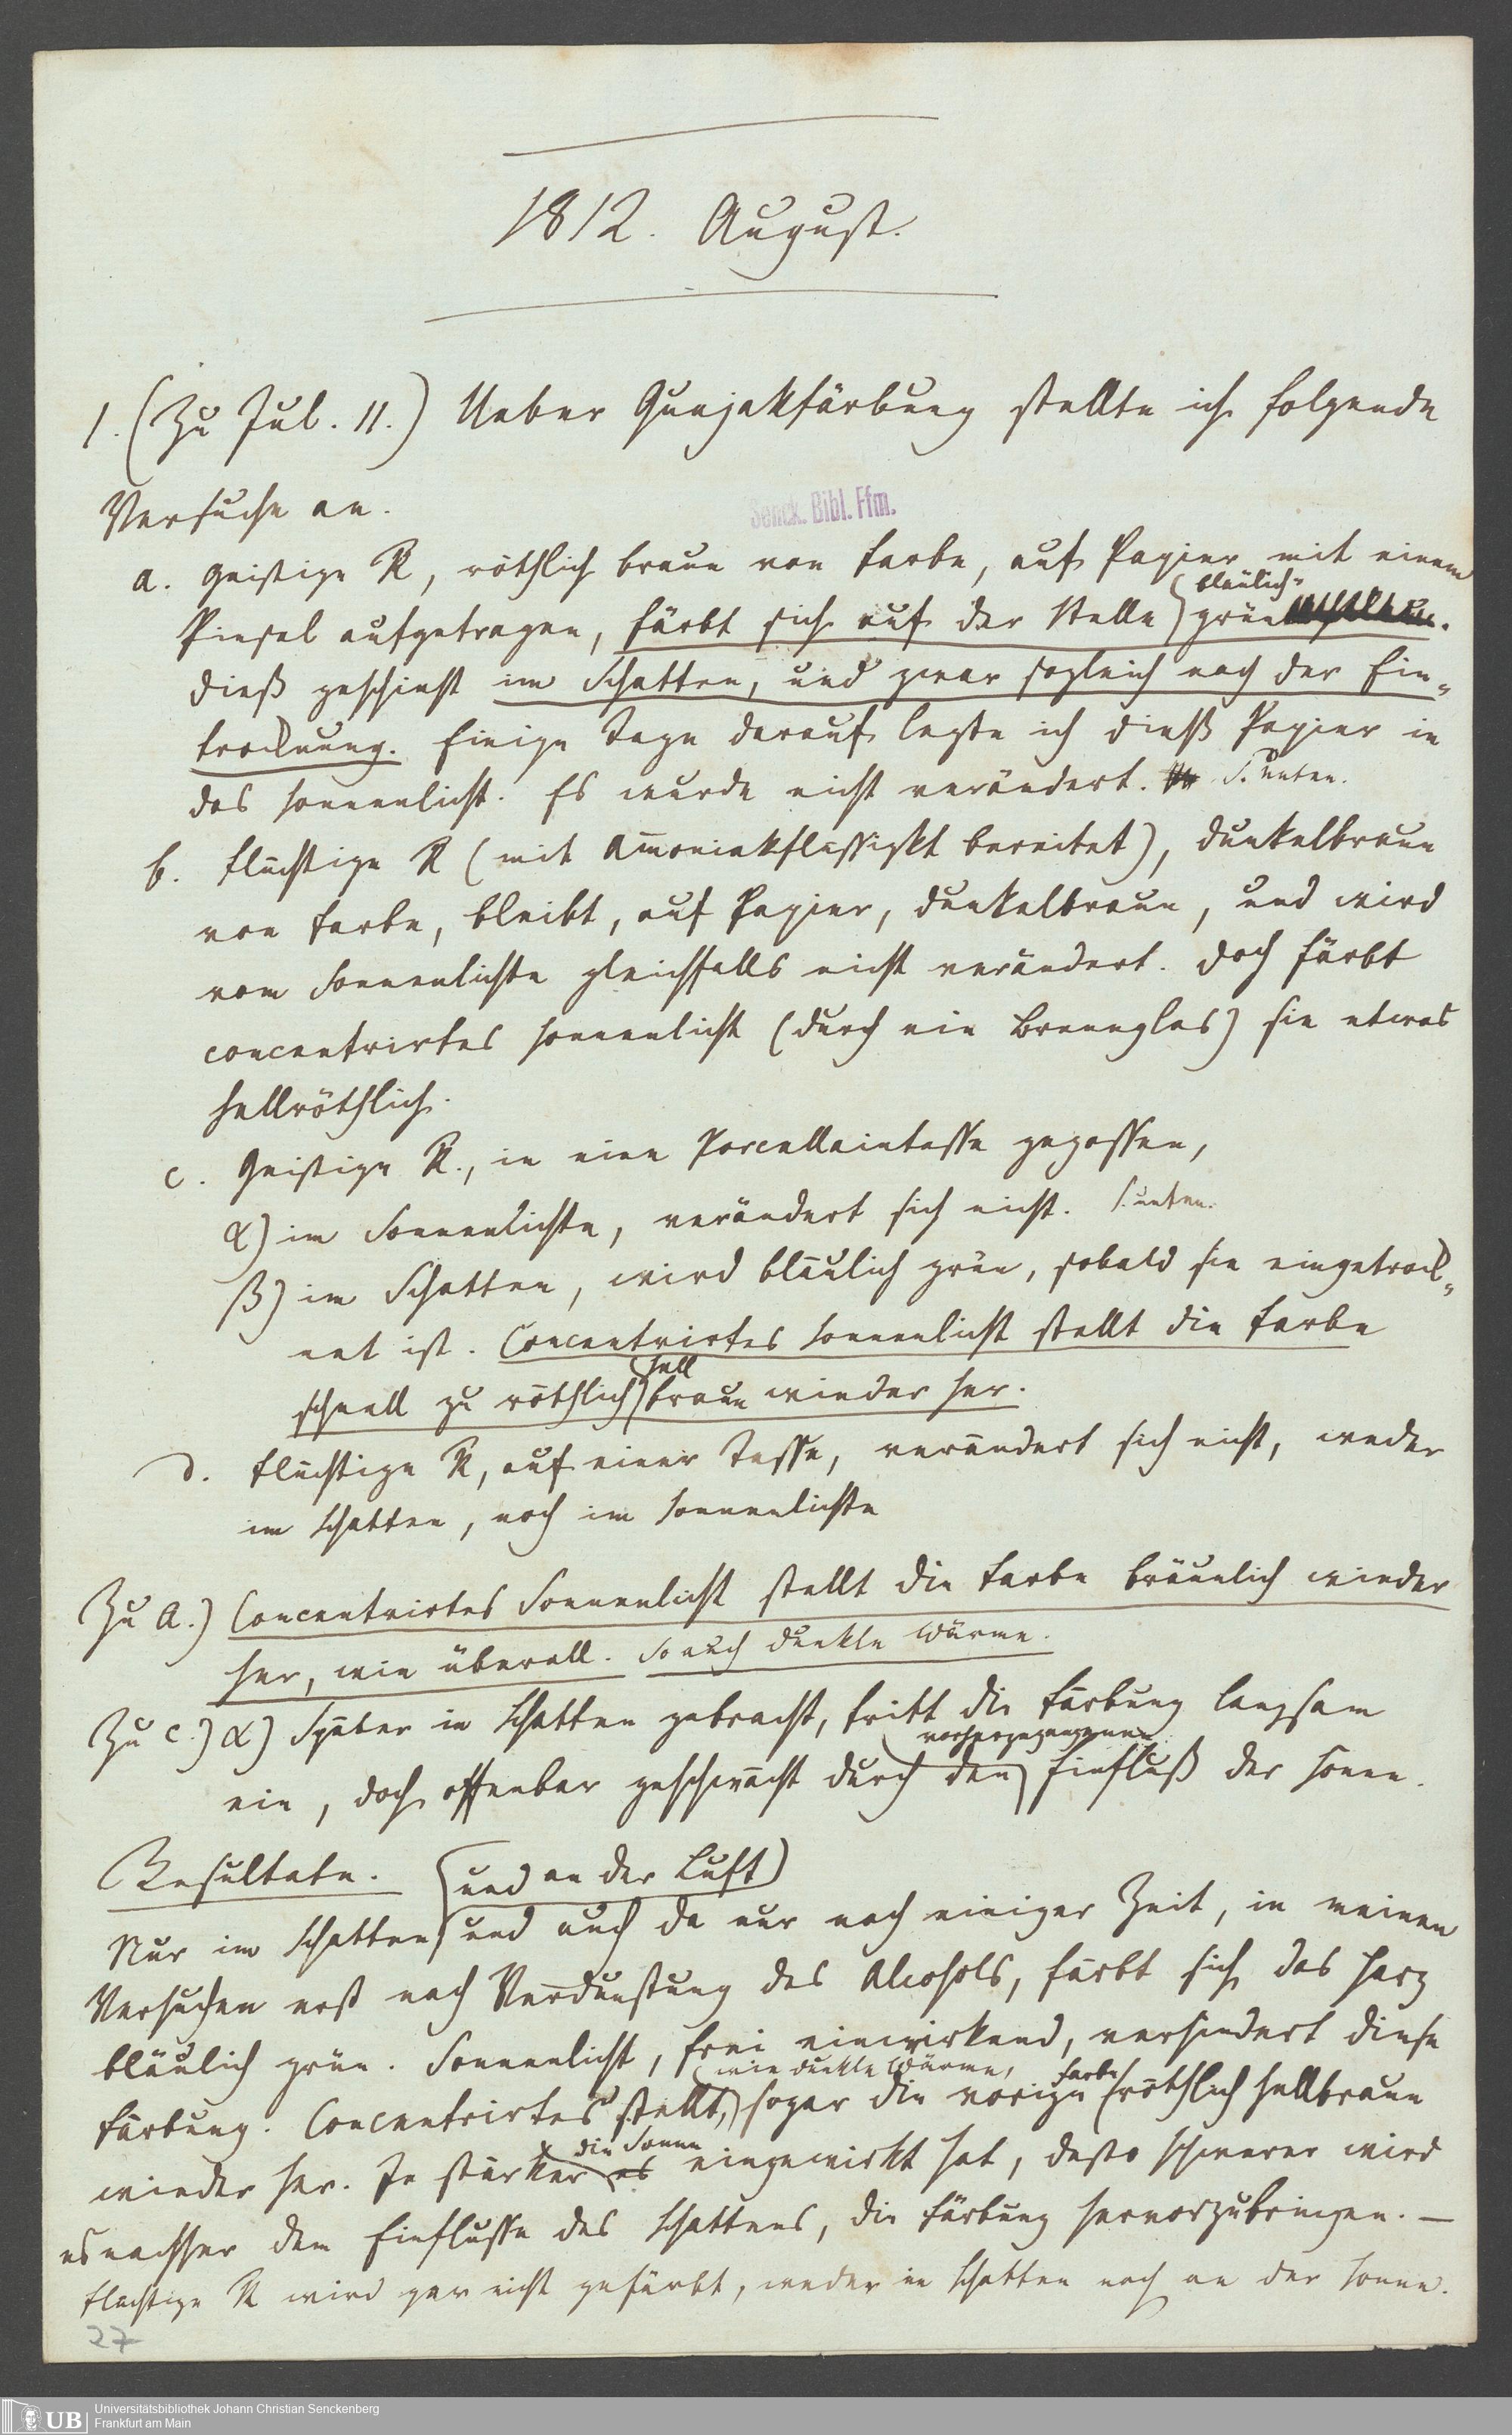 1812. August.
1. (Zu Jul. 11.) Ueber Guajakfärbung stellte ich folgende
Versuche an.
Senck. Bibl. Ffm.
a. Geistige R, röthlich braun von Farbe, auf Papier mit einem
Pinsel aufgetragen, färbt sich auf der Stelle bläulich-grün.
Dieß geschieht im Schatten, und zwar sogleich nach der Ein-
trocknung. Einige Tage darauf legte ich dieß Papier in
das Sonnenlicht. Es wurde nicht verändert. S. unten.
b. Flüchtige R (mit Amoniakflüssigkt bereitet), dunkelbraun
von Farbe, bleibt, auf Papier, dunkelbraun, und wird
vom Sonnenlichte gleichfalls nicht verändert. Doch färbt
concentrirtes Sonnenlicht (durch ein Brennglas) sie etwas
hellröthlich.
c. Geistige R., in eine Porcellaintasse gegossen,
α) im Sonnenlichte, verändert sich nicht. S. unten.
β) im Schatten, wird bläulich grün, sobald sie eingetrock-
net ist. Concentrirtes Sonnenlicht stellt die Farbe
schnell zu röthlich hellbraun wieder her.
d. Flüchtige R, auf einer Tasse, verändert sich nicht, weder
im Schatten, noch im Sonnenlichte
Zu a.) Concentrirtes Sonnenlicht stellt die Farbe bräunlich wieder
her, wie überall. So auch dunkle Wärme.
Zu c.) α) Später in Schatten gebracht, tritt die Färbung langsam
ein, doch offenbar geschwächt durch den vorhergegangenen Einfluß der Sonne.
Resultate.
Nur im Schatten (und an der Luft) und auch da nur nach einiger Zeit, in meinen
Versuchen erst nach Verdunstung des Alcohols, färbt sich das Harz
bläulich grün. Sonnenlicht, frei einwirkend, verhindert diese
Färbung. Concentrirtes stellt, wie dunkle Wärme, sogar die vorige Farbe röthlich hellbraun
wieder her. Je stärker es die Sonne eingewirkt hat, desto schwerer wird
es nachher dem Einflusse des Schattens, die Färbung hervorzubringen. —
Flüchtige R wird gar nicht gefärbt, weder im Schatten noch an der Sonne.
27
UB
Universitätsbibliothek Johann Christian Senckenberg
Frankfurt am Main